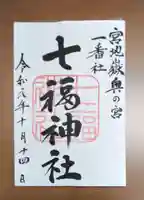 宮地嶽奥の宮
一番社
七福神社
令和元年十月十四日